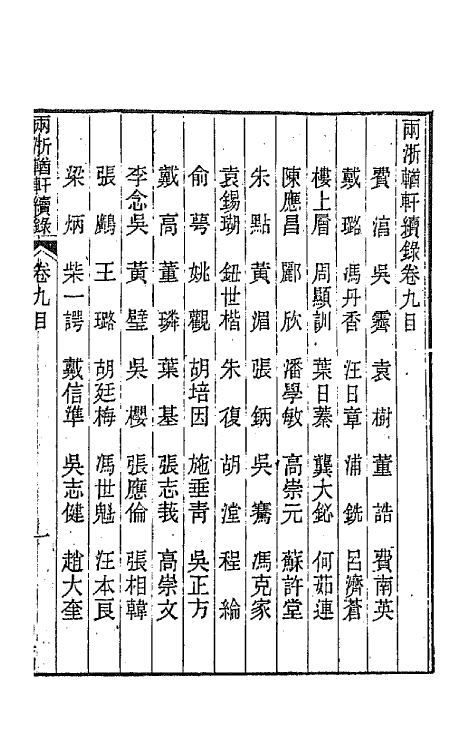 兩浙輶軒續錄卷九目
費淯　吳霽　袁樹　董誥　費南英
戴璐　馮丹香　汪日章　浦銑　呂濟蒼
樓上層　周顯訓　葉日蓁　龔大鉍　何茹連
陳應昌　酈欣　潘學敏　高崇元　蘇許堂
朱點　黃湄　張鈵　吳騫　馮克家
袁錫瑚　鈕世楷　朱復　胡瀅　程綸
俞萼　姚觀　胡培因　施垂靑　吳正方
戴高　董璘　葉基　張志莪　高崇文
李念吳　黃璧　吳櫻　張應倫　張相韓
張鷵　王璐　胡廷梅　馮世魁　汪本艮
梁炳　柴一諤　戴信準　吳志健　趙大奎
兩浙輶軒續錄　卷九目　一